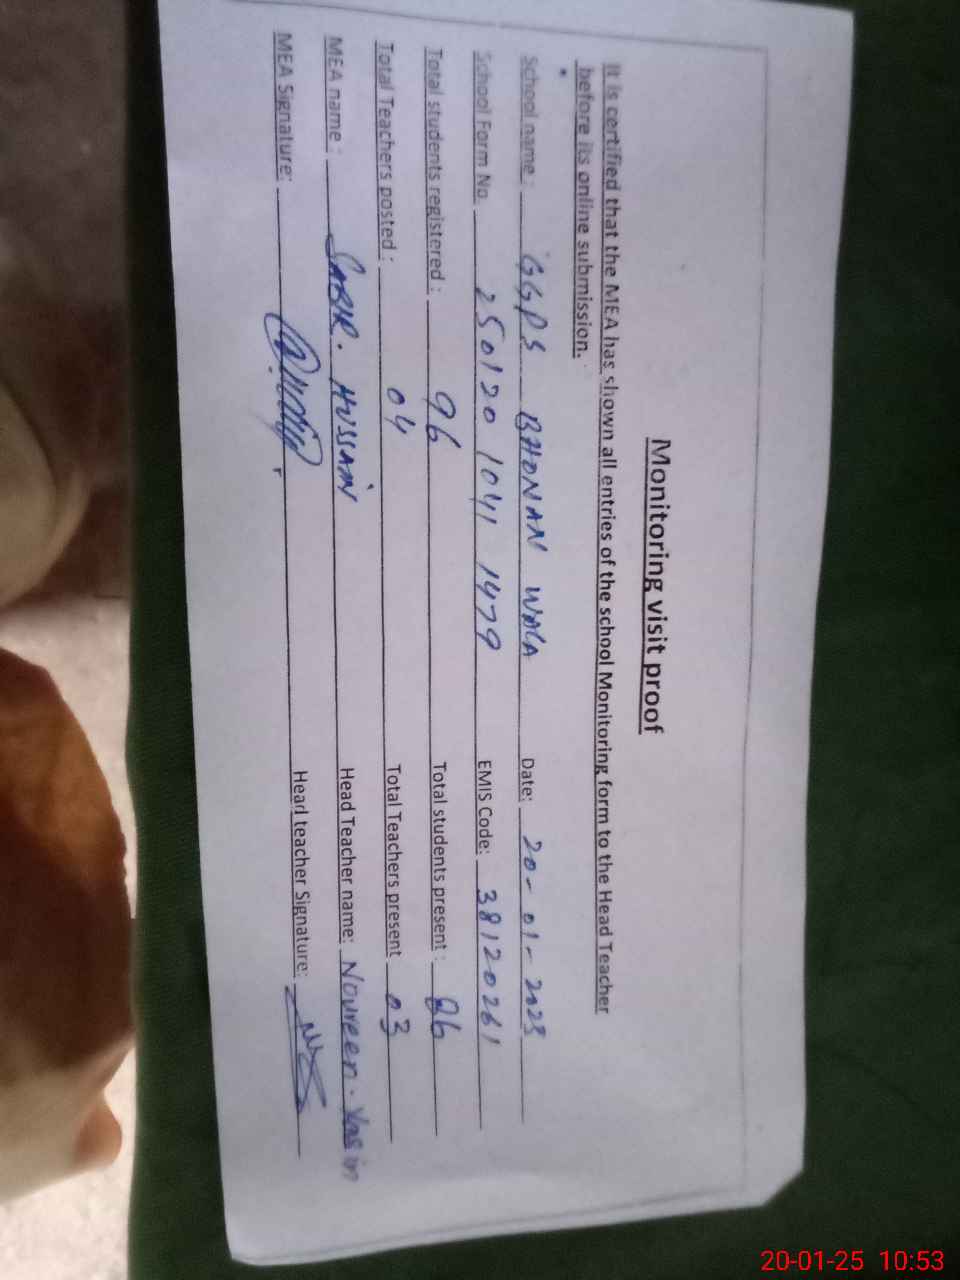 Monitoring visit proof
It is certified that the MEA has shown all entries of the school Monitoring form to the Head Teacher
before its online submission.
School name : GGPS BHONAN WALA Date: 20-01-2025
School Form No. 250120 1041 1479 EMIS Code: 38120261
Total students registered : 96 Total students present : 86
Total Teachers posted : 04 Total Teachers present 03
MEA name : SABIR. HUSSAIN Head Teacher name: Noureen. Yasin
MEA Signature: Head teacher Signature:
20-01-25 10:53